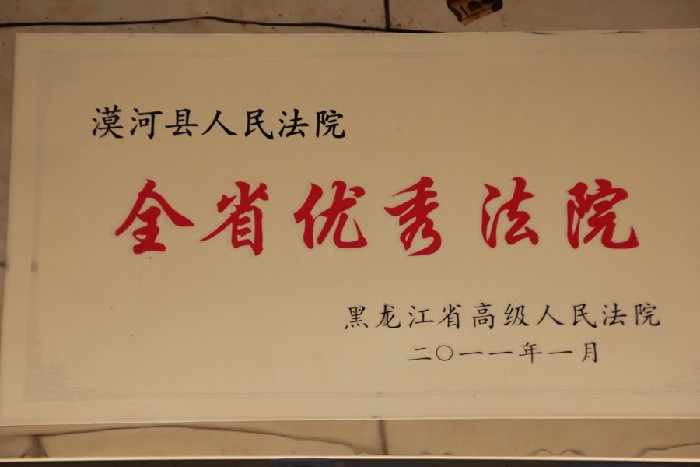 漠河县人民法院
全省优秀法院
黑龙江省高级人民法院
二〇一一年一月